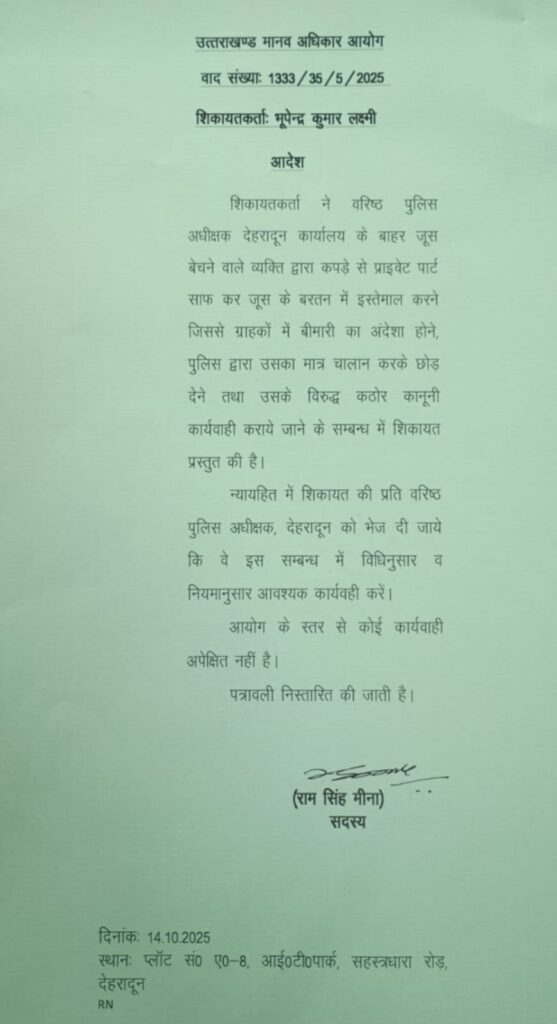 उत्तराखण्ड मानव अधिकार आयोग
वाद संख्याः 1333/35/5/2025
शिकायतकर्ताः भूपेन्द्र कुमार लक्ष्मी
आदेश
शिकायतकर्ता ने वरिष्ठ पुलिस
अधीक्षक देहरादून कार्यालय के बाहर जूस
बेचने वाले व्यक्ति द्वारा कपड़े से प्राइवेट पार्ट
साफ कर जूस के बरतन में इस्तेमाल करने
जिससे ग्राहकों में बीमारी का अंदेशा होने,
पुलिस द्वारा उसका मात्र चालान करके छोड़
देने तथा उसके विरुद्ध कठोर कानूनी
कार्यवाही कराये जाने के सम्बन्ध में शिकायत
प्रस्तुत की है।
न्यायहित में शिकायत की प्रति वरिष्ठ
पुलिस अधीक्षक, देहरादून को भेज दी जाये
कि वे इस सम्बन्ध में विधिनुसार व
नियमानुसार आवश्यक कार्यवही करें।
आयोग के स्तर से कोई कार्यवाही
अपेक्षित नहीं है।
पत्रावली निस्तारित की जाती है।
(राम सिंह मीना)
सदस्य
दिनांकः 14.10.2025
स्थानः प्लॉट सं0 ए0-8, आई0टी0पार्क, सहस्त्रधारा रोड़,
देहरादून
RN